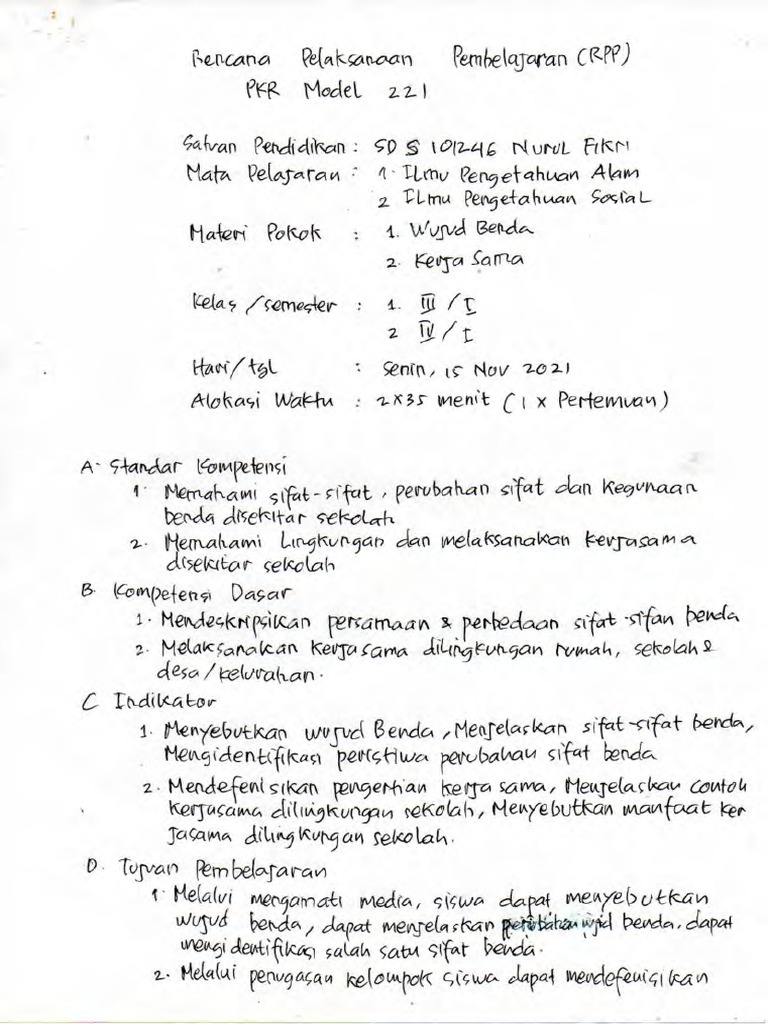 Rencana Pelaksanaan Pembelajaran (RPP)
PKR Model 221
Satuan Pendidikan : SD S 101246 Nurul Fikri
Mata Pelajaran : 1. Ilmu Pengetahuan Alam
2 Ilmu Pengetahuan Sosial
Materi Pokok : 1. Wujud Benda
2. Kerja Sama
Kelas / semester : 1. III / I
2 IV / I
Hari / tgl : Senin, 15 Nov 2021
Alokasi Waktu : 2 x 35 menit ( 1 x Pertemuan )
A. Standar Kompetensi
1. Memahami sifat-sifat, perubahan sifat dan kegunaan
benda disekitar sekolah
2. Memahami Lingkungan dan melaksanakan kerjasama
disekitar sekolah
B. Kompetensi Dasar
1. Mendeskripsikan persamaan & perbedaan sifat-sifan benda
2. Melaksanakan kerjasama dilingkungan rumah, sekolah &
desa / kelurahan.
C Indikator
1. Menyebutkan wujud Benda, Menjelaskan sifat-sifat benda,
Mengidentifikasi peristiwa perubahan sifat benda
2. Mendefenisikan pengertian kerja sama, Menjelaskan contoh
kerjasama dilingkungan sekolah, Menyebutkan manfaat ker
jasama dilingkungan sekolah.
D. Tujuan Pembelajaran
1. Melalui mengamati media, siswa dapat menyebutkan
wujud benda, dapat menjelaskan perubahan wujud benda. dapat
mengidentifikasi salah satu sifat benda.
2. Melalui penugasan kelompok siswa dapat mendefenisikan